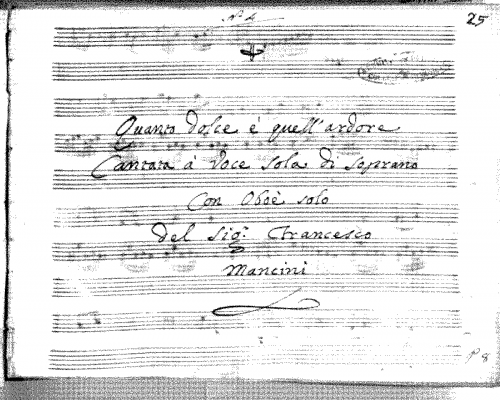 N.º 4
25
Quanto dolce è quell'ardore
Cantata à Voce sola di Soprano
Con Oboè solo
del Sig.r Francesco
Mancini
P 8